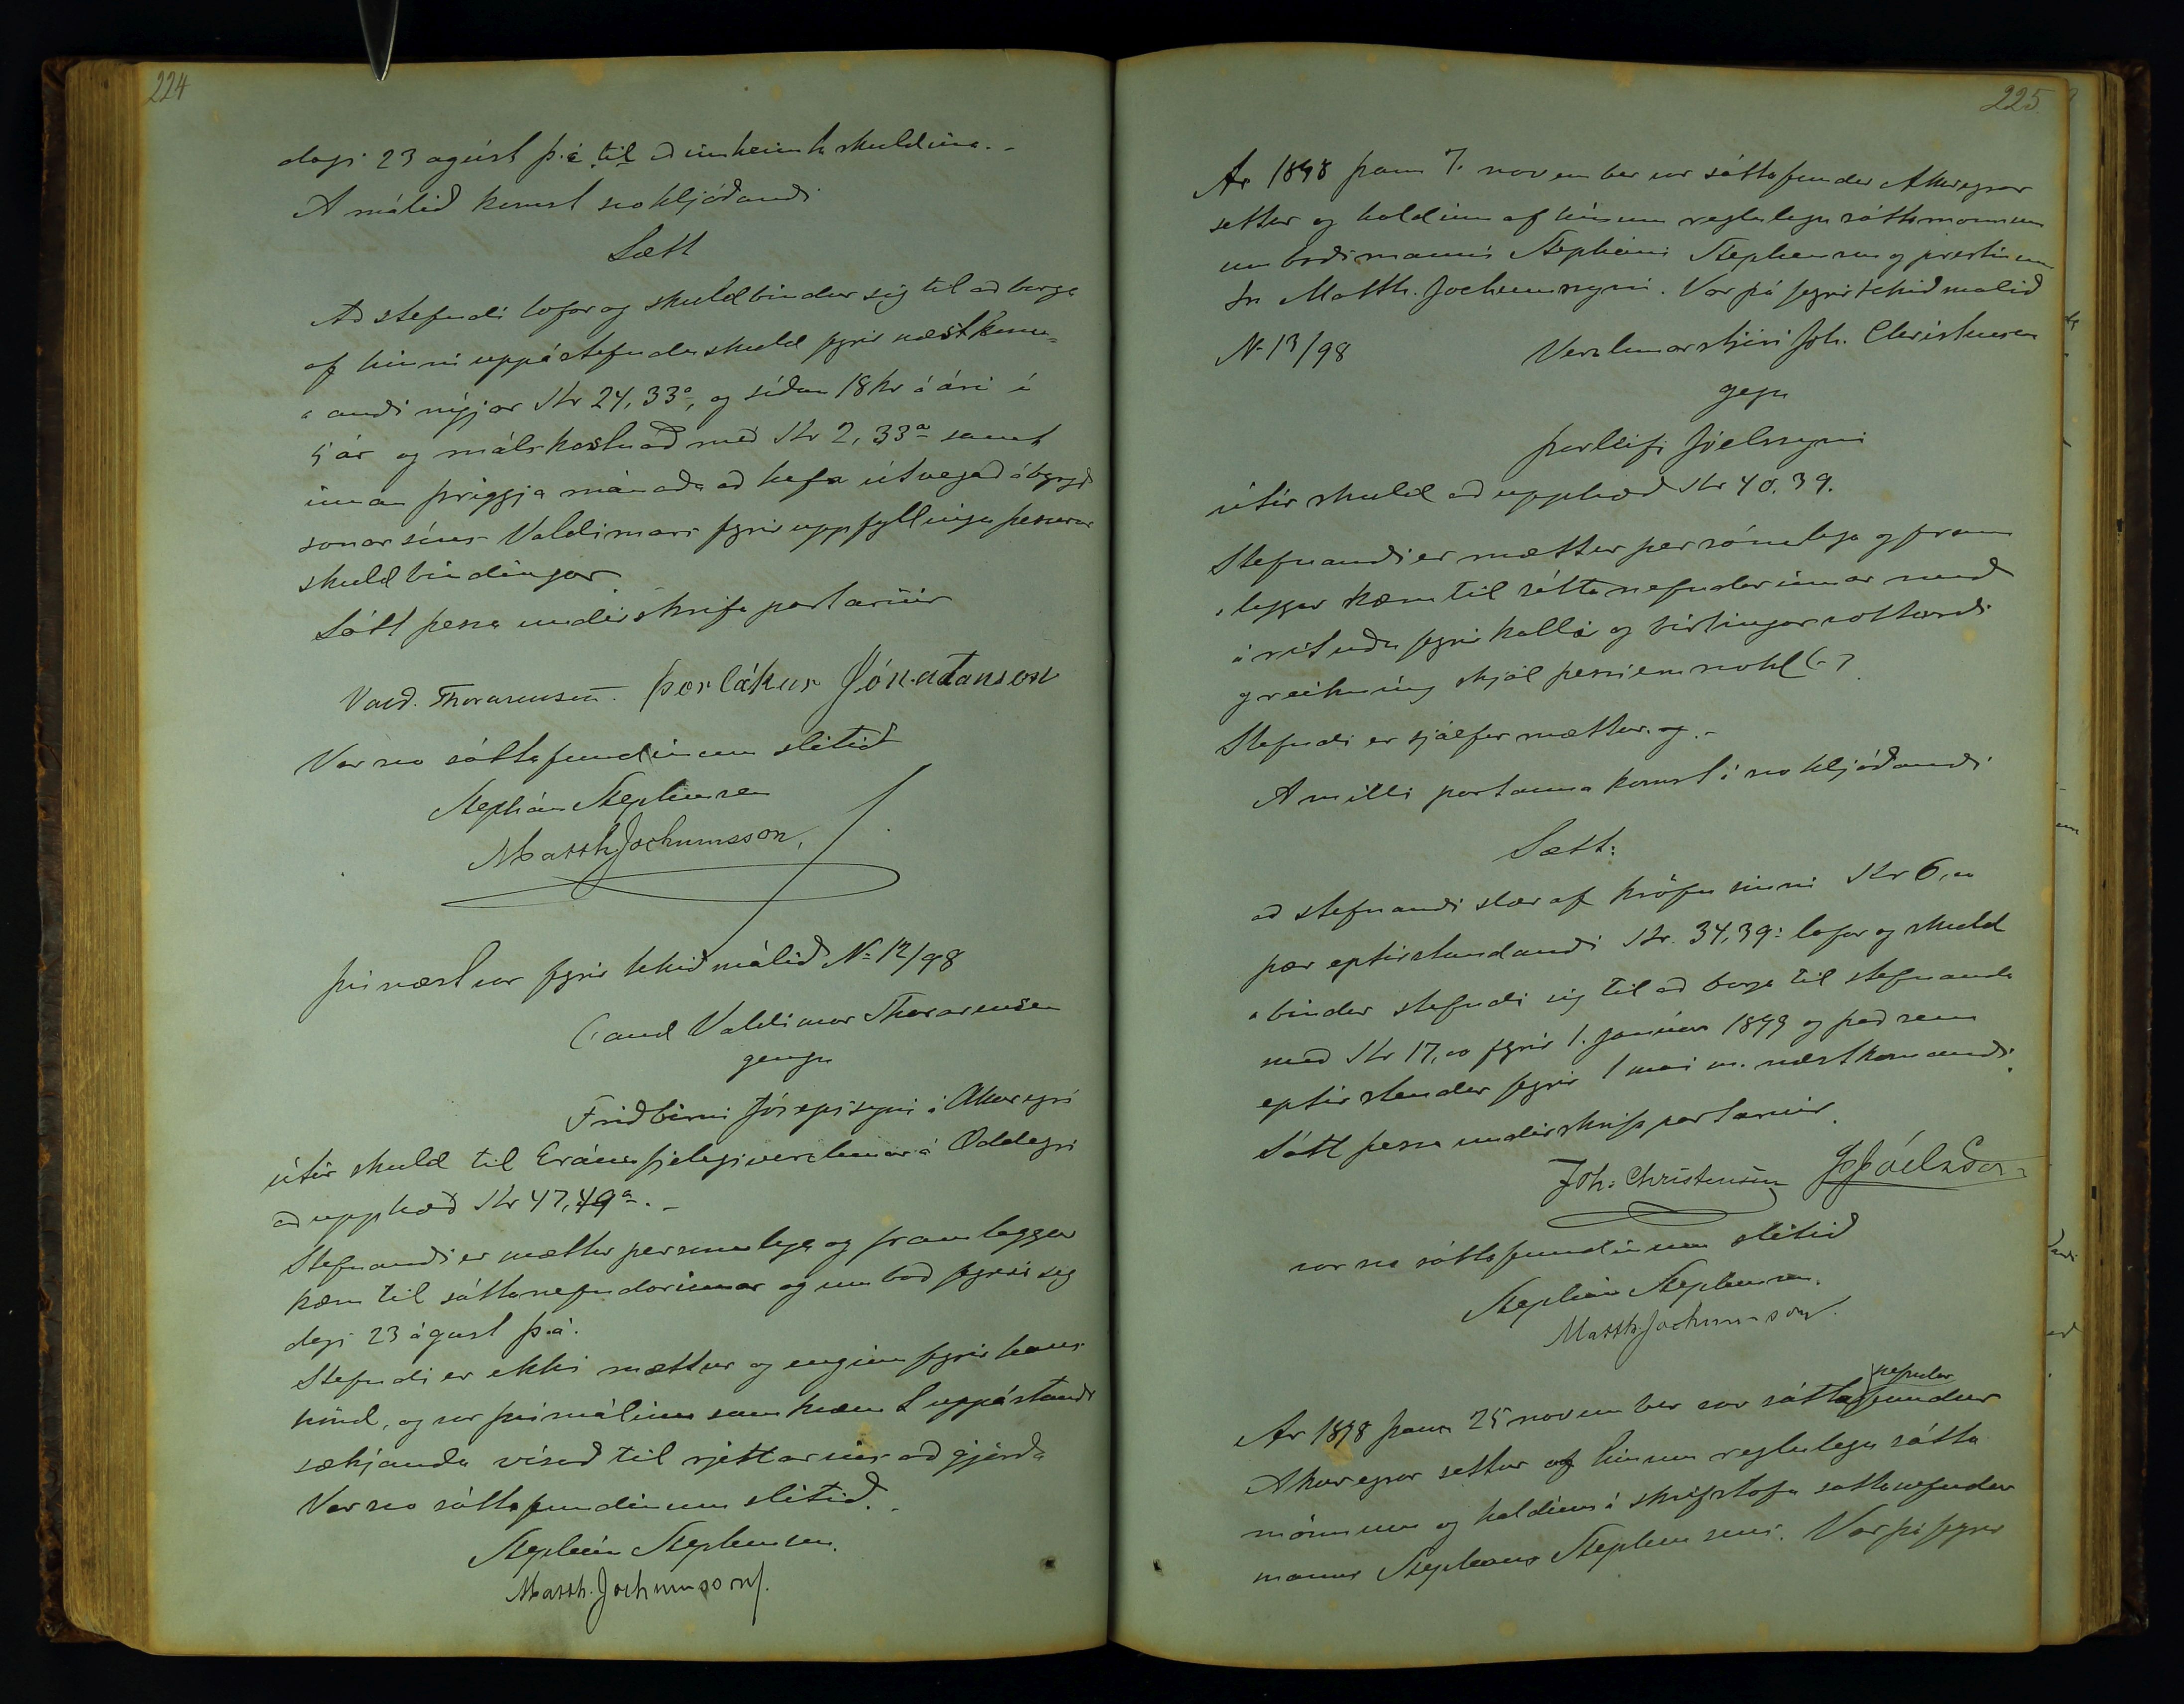 224
dags 23 ágúst þ.á til að innheimta skuldina.-
Á málið komst svohljóðandi
Sætt
Að stefndi lofar og skuldbindur sig til að borga
af hinni uppástefndu skuld fyrir næstkom=
"andi nýjár Kr 24,33a, og síðan 18 kr á ári í
5 ár og málskostnað með Kr 2,33a samt
innan þriggja mánaða að hafa útvegað ábyrgð
sonar síns Valdimars fyrir uppfyllingu þessarar
skuldbindingar
Sátt þessa undirskrifa partarnir
Vald. Thorarensen. Þorlákur Jónatansson
Var svo sáttafundinum slitið
Stephán Stephensen
Matth Jochumsson,
Því næst var fyrir tekið málið No 12/98
Cand Valdimar Thorarensen
gegn
Friðbirni Jósepssyni á Akureyri
útúr skuld til Gránufjelagsverzlunar á Oddeyri
að upphæð Kr 47,49a.-
Stefnandi er mættur personulega og framleggur
kæru til sáttanefndarinnar og umboð fyrir sig
dags 23 ágúst þ.á.
Stefndi er ekki mættur og enginn fyrir hans
hönd, og var því málinu samkvæmt uppástandi
sækjanda vísað til rjettarins aðgjörða
Var svo sáttafundinum slitið.
Stephán Stephensen.
Matth. Jochumsson.
225
Ár 1898 þann 7. november var sáttafundur Akureyrar
settur og haldinn af hinum reglulegu sáttamönnum
umboðsmanni Stepháni Stephensen og prestinum
sr Matth. Jochumssyni. Var þá fyrirtekið málið
No 13/98 Verzlunarstjóri Joh. Christensen
gegn
Þorleifi Jóelssyni
útúr skuld að upphæð Kr 40.39.
Stefnandi er mættur persónulega og fram
"leggur kæru til sáttanefndarinnar með
árituðu fyrirkalli og birtingarvottorði
og reikning skjöl þessi eru svohl (-)
Stefndi er sjálfur mættur. og.-
Á milli partanna komst á svohljóðandi
Sætt:
að stefnandi slær af kröfu sinni Kr 6,00
þær eptirstandandi Kr. 34,39: lofar og skuld
"bindur stefndi sig til að borga til stefnanda
með Kr 17,00 fyrir 1. janúar 1899 og það sem
eptir stendur fyrir 1 mai m. næstkomandi.
Sátt þessa undirskrifa partarnir.
Joh. Christensen Þ Jóelsson
var svo sáttafundinum slitið
Stephán Stephensen.
Matth. Jochumsson.
Ár 1898 þann 25 november var sáttanefndarfundur
Akureyrar settur af hinum reglulegu sátta
mönnum og haldinn á skrifstofu sáttanefndar
manns Stepháns Stephensens. Var þá fyrir